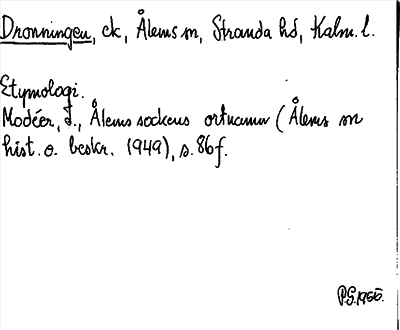 Dronningen, ck, Ålems sn, Stranda hd, Kalm. l.
Etymologi.
Modéer, I., Ålems sockens ortnamn (Ålems sn
hist. o. beskr. (1949), s. 86 f.
P.G. 1955.